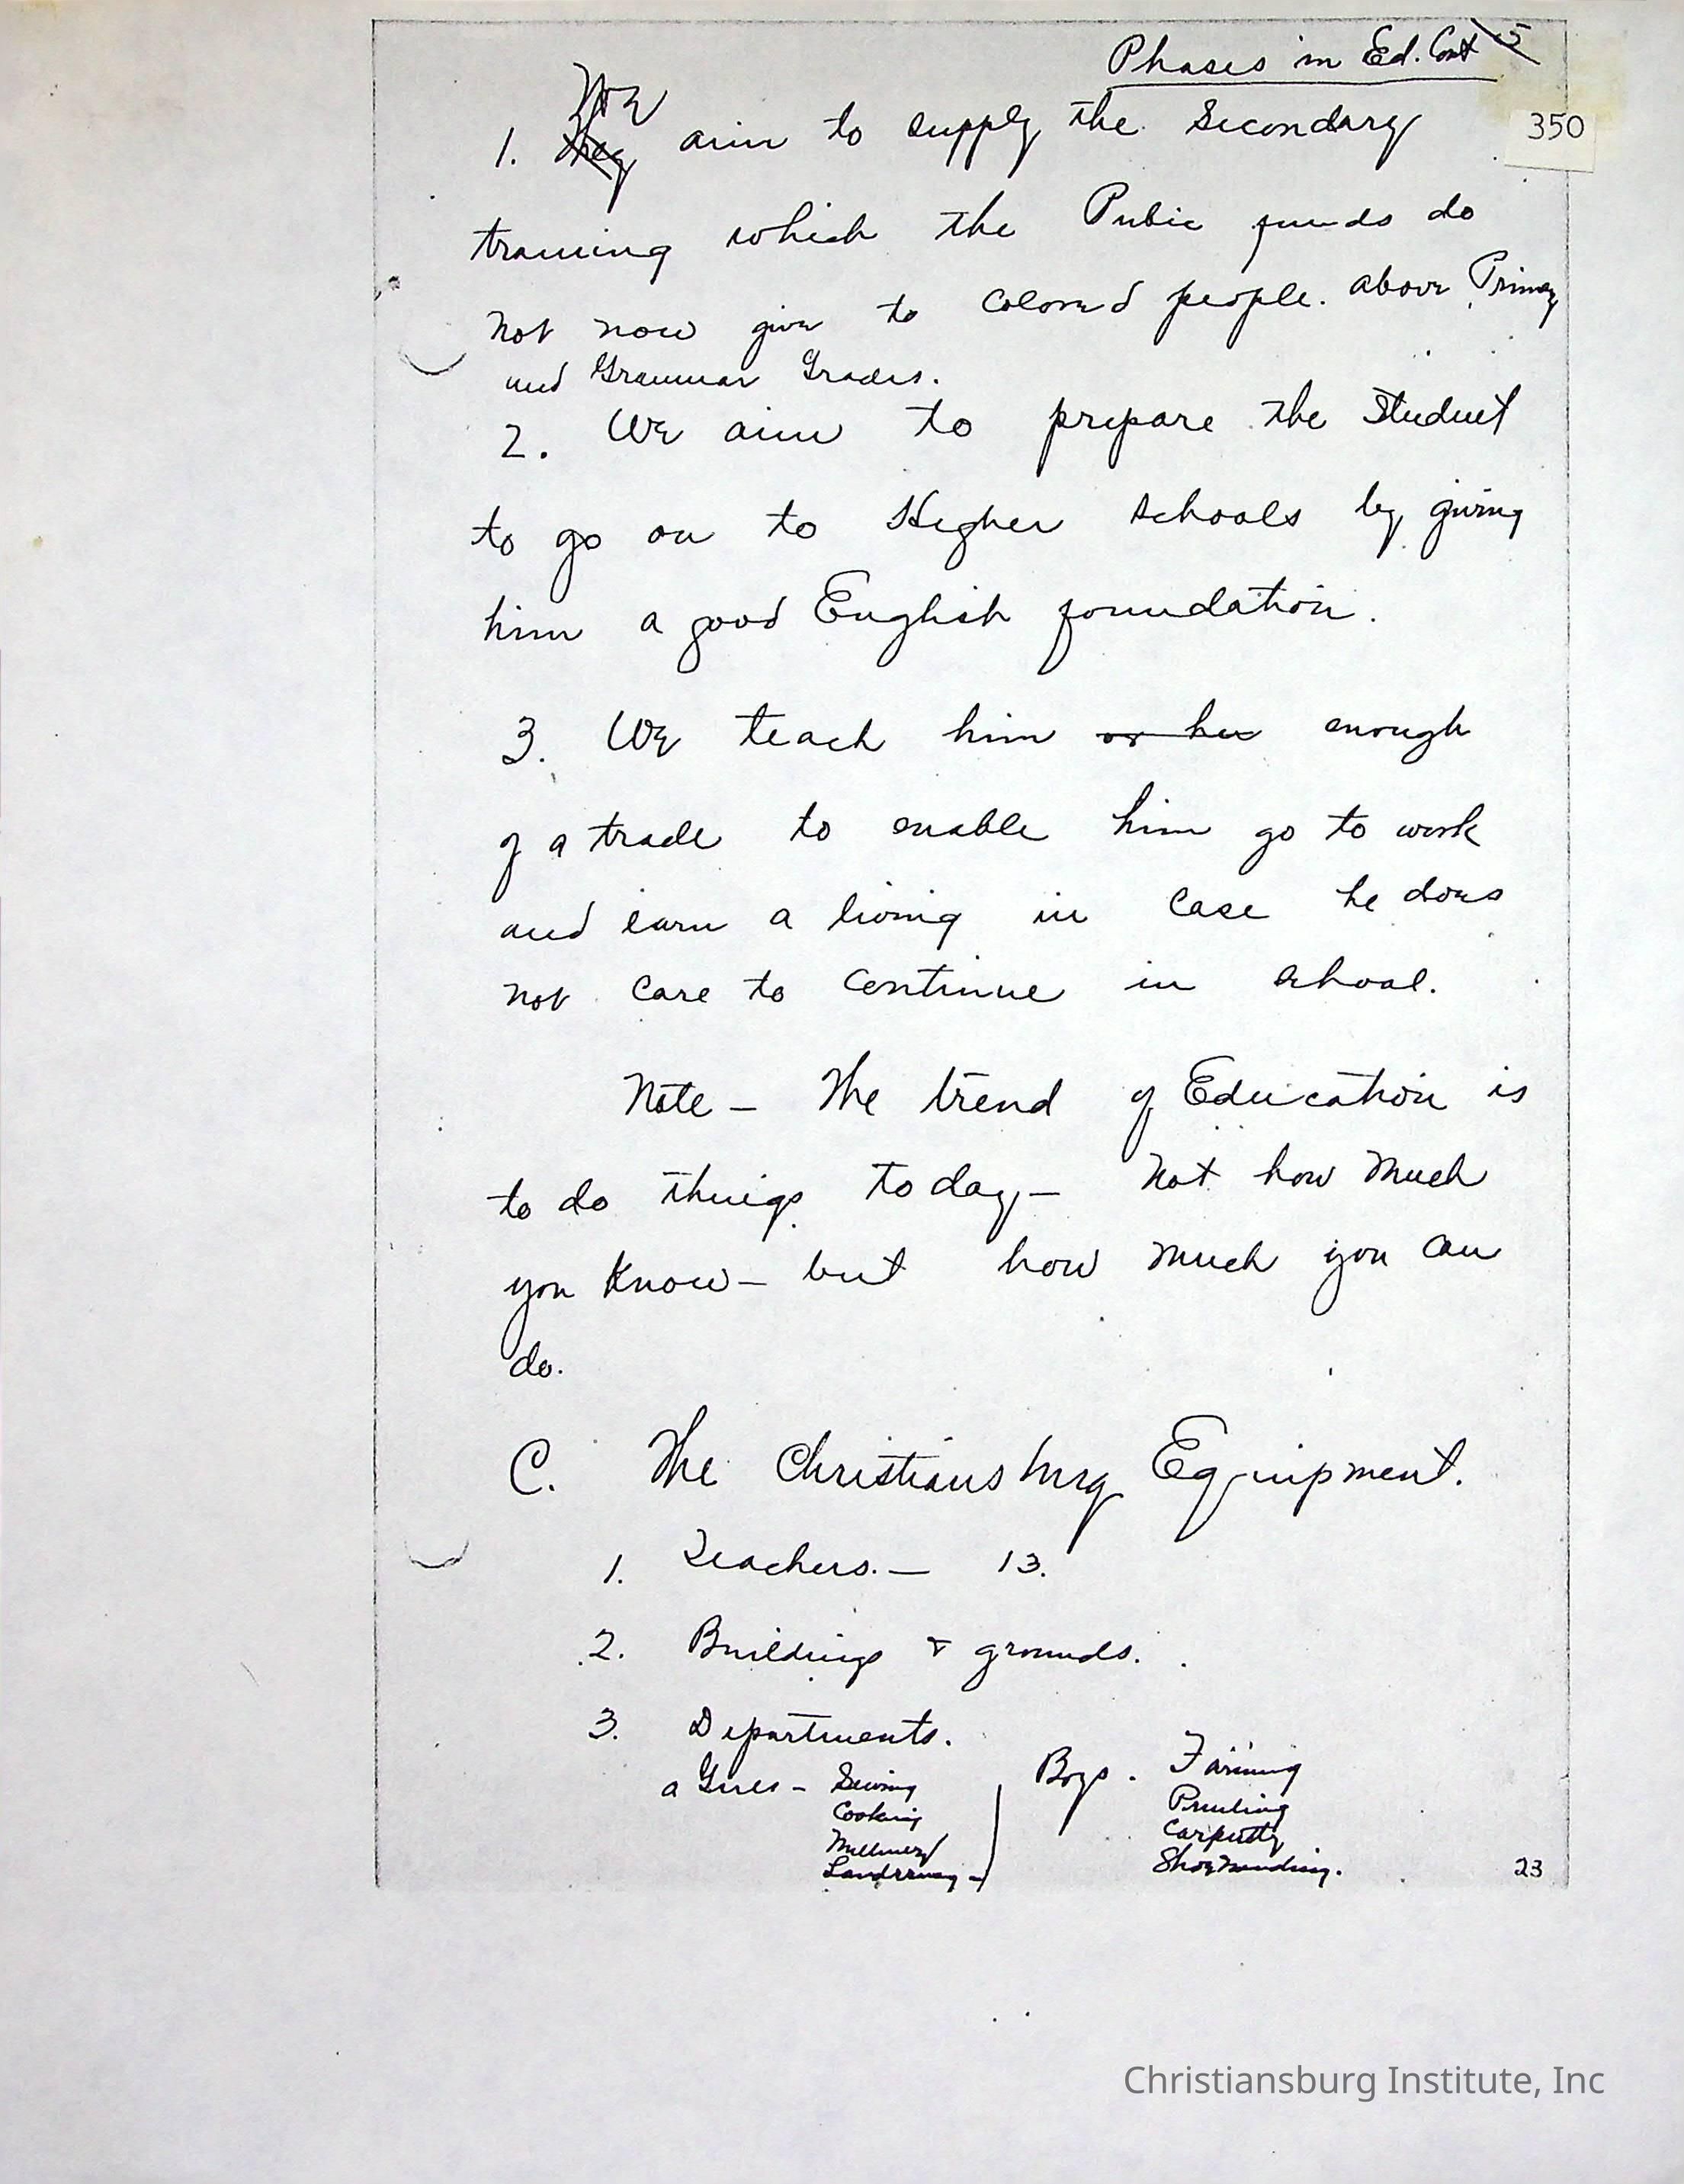 Phases in Ed. Cont 5
350
We
1. They aim to supply the Secondary
training which the Pubic funds do
not now give to Colored people. above Primary
and Grammar Grades.
2. We aim to prepare the Student
to go on to Higher schools by giving
him a good English foundation.
3. We teach him or her enough
of a trade to enable him go to work
and earn a living in Case he does
not Care to Continue in school.
Note – The trend of Education is
to do things today – Not how much
you know – but how much you can
do.
C. The Christiansburg Equipment.
1. Teachers. – 13.
2. Buildings & grounds.
3. Departments.
a Girls – Sewing
Cooking
Millinery
Boys. Farming
Printing
Carpentry
Shoe mending.
23
Christiansburg Institute, Inc